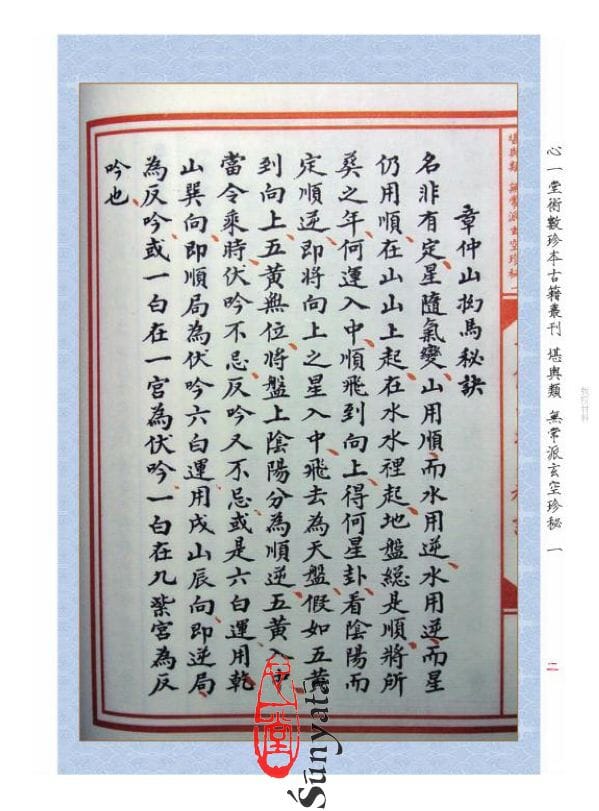 心一堂術數珍本古籍叢刊 堪輿類 無常派玄空珍秘 一
二
堪輿類 無常派玄空珍秘 一
章仲山抝馬秘訣
名非有定星隨氣變山用順而水用逆水用逆而星
仍用順在山山上起在水水裡起地盤總是順將所
葬之年何運入中順飛到向上得何星卦看陰陽而
定順逆即將向上之星入中飛去為天盤假如五黃
到向上五黃無位將盤上陰陽分為順逆五黃入中
當令乘時伏吟不忌反吟又不忌或是六白運用乾
山巽向即順局為伏吟六白運用戌山辰向即逆局
為反吟或一白在一宮為伏吟一白在九紫宮為反
吟也
心一堂
Śūnyatā